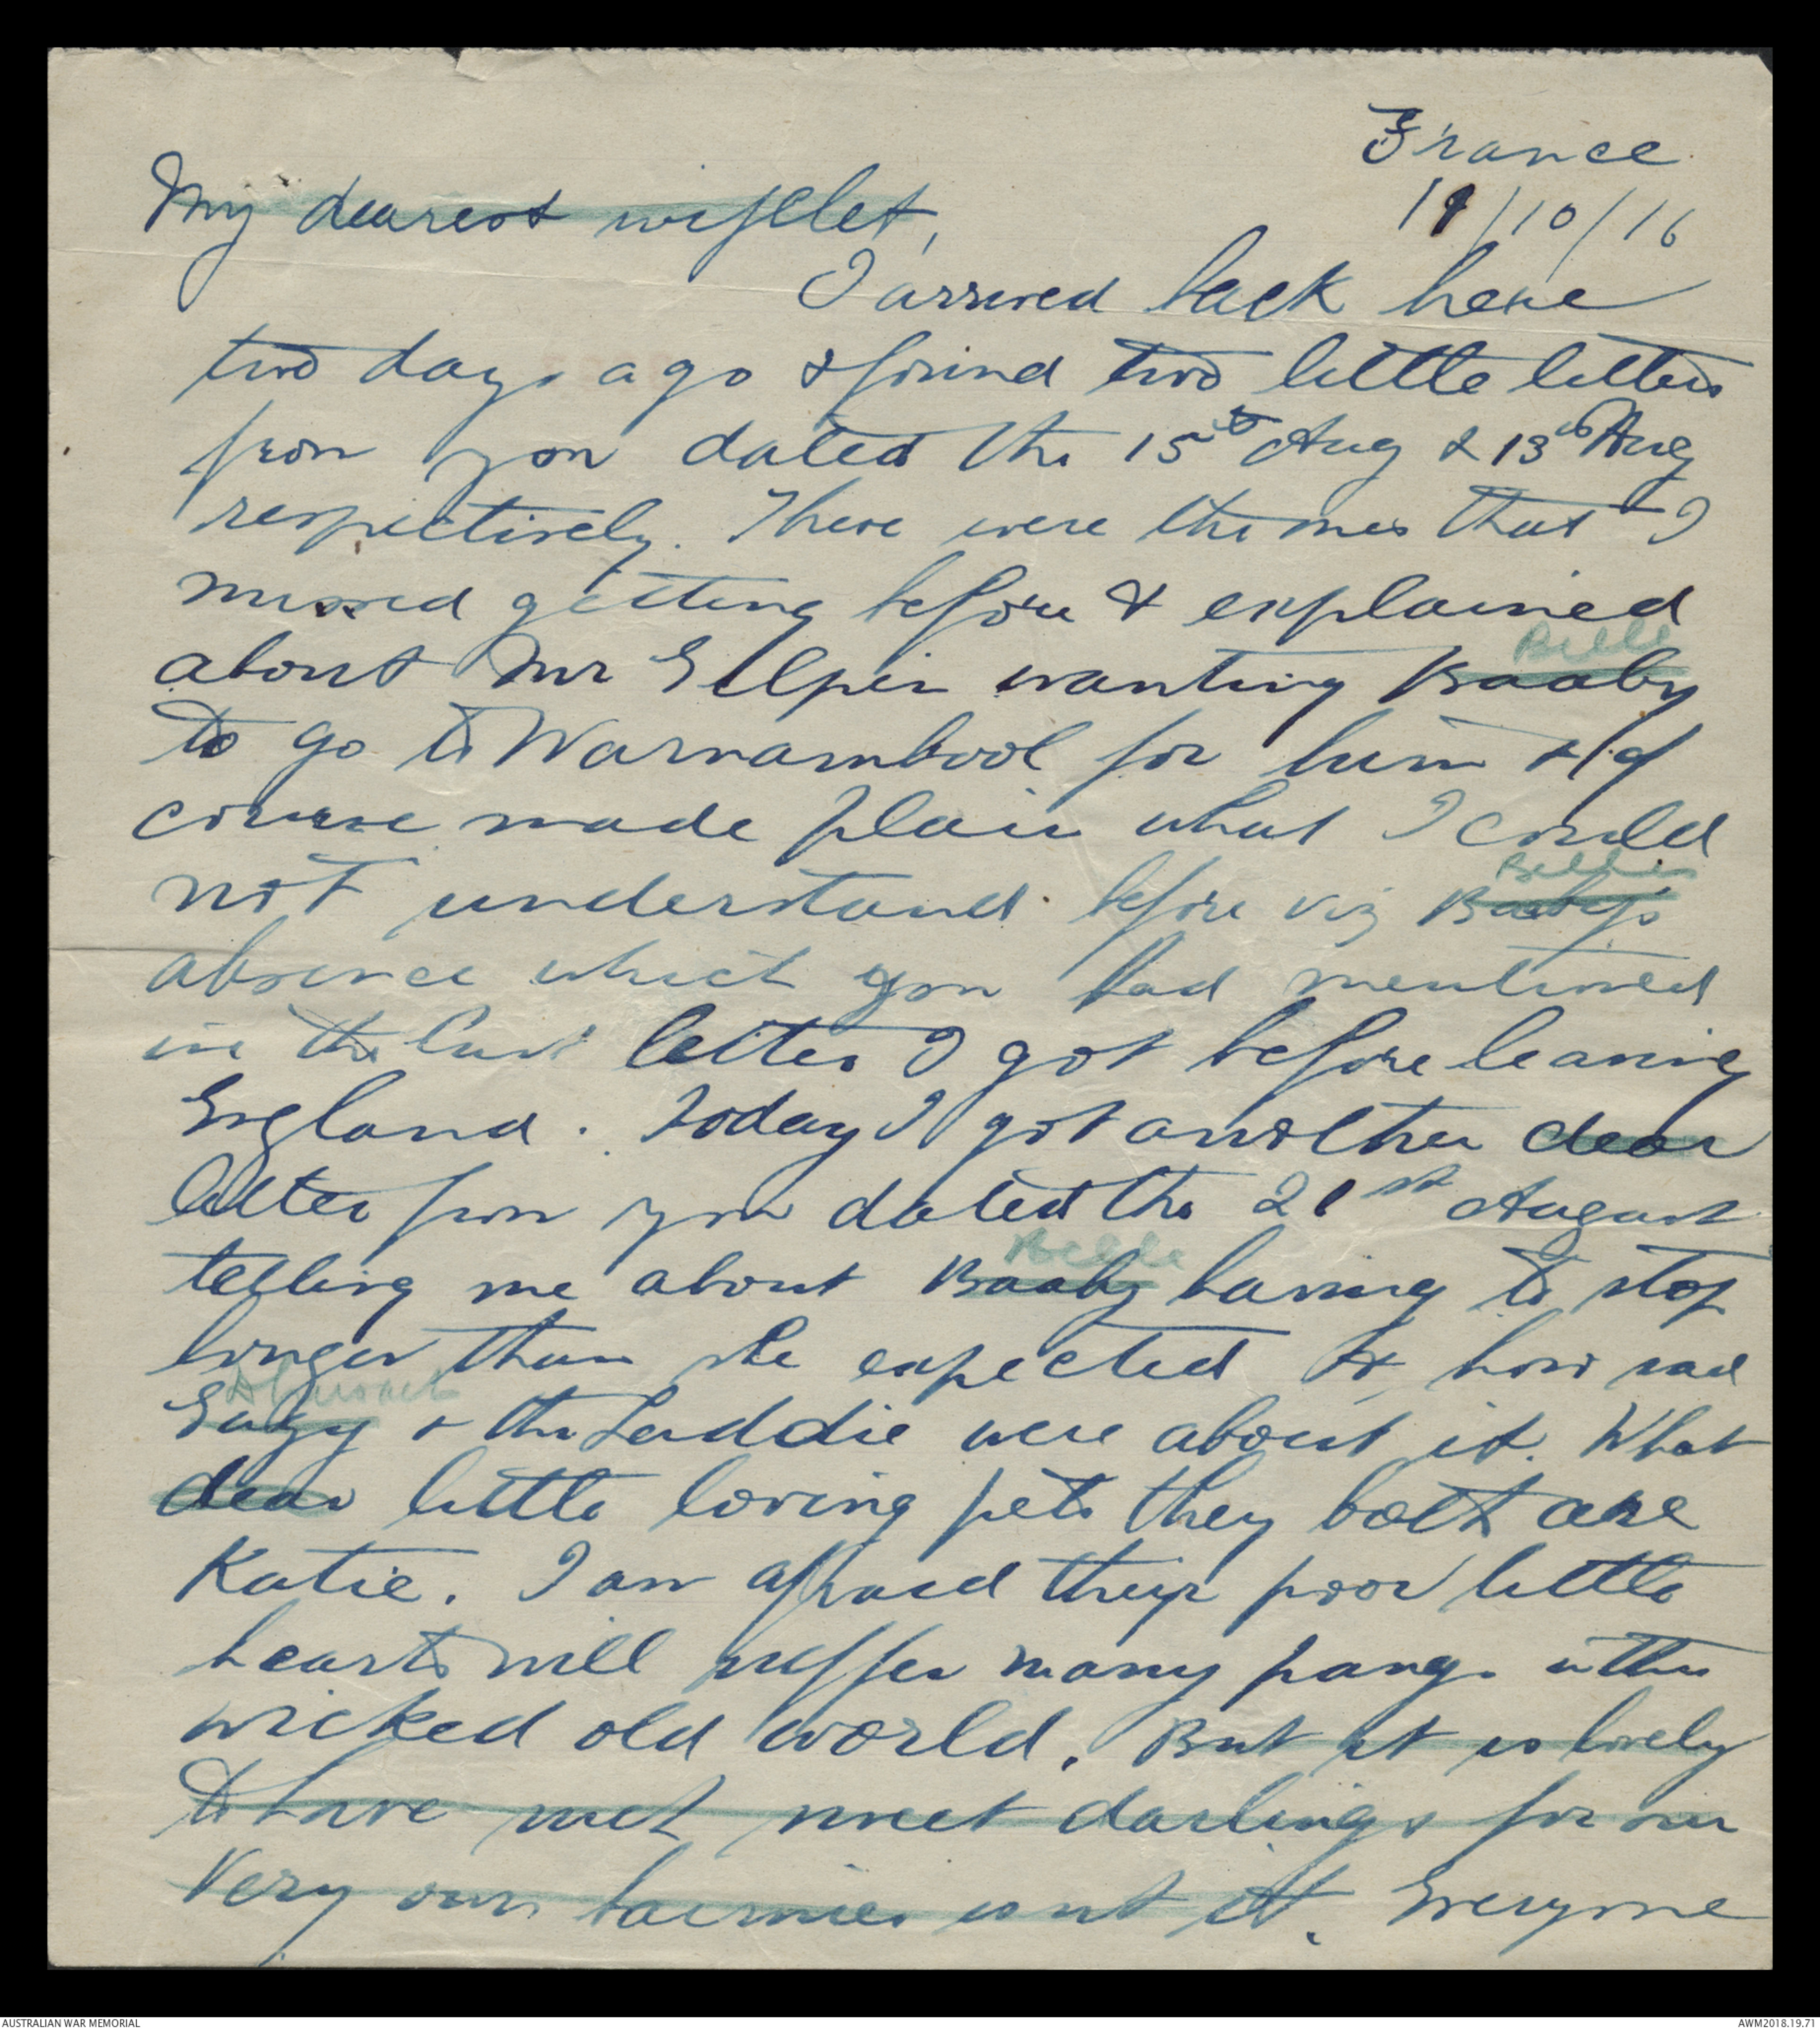 France
19/10/16
My dearest wifelet,
I arrived back here
two days ago & found two little letters
from you dated the 15th Aug & 13th Aug
respectively. These were the ones that I
missed getting before & explained
Belle
about Mr Gilpin wanting Baaby
to go to Warrambool for him & of
course made plain what I could
Belle's
not understand before viz Baaby's
absence which you had mentioned
in the last letter I got before leaving
England. Today I got another dear
letter from you dated the 21st August
Belle
telling me about Baaby having to stop
longer than she expected & how sad
& the Laddie were about it. What
dear little loving pets they both are
Katie. I am afraid their poor little
hearts will suffer many pangs in this
wicked old world. But it is lovely
to have such sweet darlings for our
very own bairnies isnt it. Everyone
AUSTRALIAN WAR MEMORIAL
AWM2018.19.71